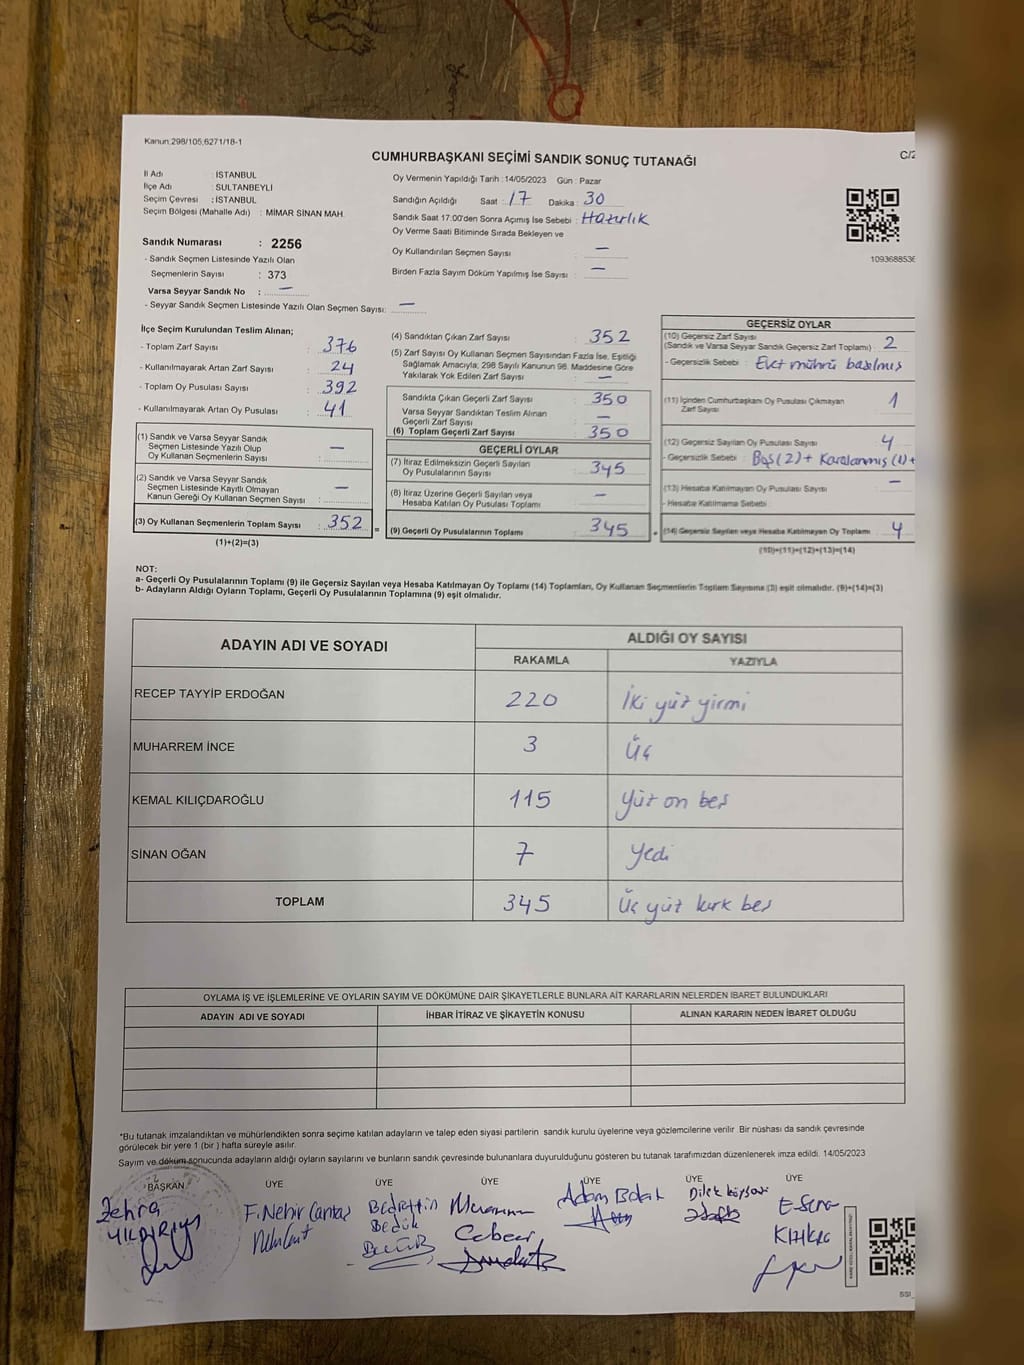 Kanun:298/105,6271/18-1
CUMHURBAŞKANI SEÇİMİ SANDIK SONUÇ TUTANAĞI
C/2
İl Adı : İSTANBUL
İlçe Adı : SULTANBEYLİ
Seçim Çevresi : İSTANBUL
Seçim Bölgesi (Mahalle Adı) : MİMAR SİNAN MAH.
Oy Vermenin Yapıldığı Tarih :14/05/2023 Gün : Pazar
Sandığın Açıldığı Saat : 17 Dakika : 30
Sandık Saat 17:00'den Sonra Açımış İse Sebebi : Hazırlık
Oy Verme Saati Bitiminde Sırada Bekleyen ve
Oy Kullandırılan Seçmen Sayısı : —
Birden Fazla Sayım Döküm Yapılmış İse Sayısı : —
1093688536
Sandık Numarası : 2256
- Sandık Seçmen Listesinde Yazılı Olan
Seçmenlerin Sayısı : 373
Varsa Seyyar Sandık No : —
- Seyyar Sandık Seçmen Listesinde Yazılı Olan Seçmen Sayısı: —
İlçe Seçim Kurulundan Teslim Alınan;
- Toplam Zarf Sayısı : 376
- Kullanılmayarak Artan Zarf Sayısı : 24
- Toplam Oy Pusulası Sayısı : 392
- Kullanılmayarak Artan Oy Pusulası : 41
(1) Sandık ve Varsa Seyyar Sandık
Seçmen Listesinde Yazılı Olup
Oy Kullanan Seçmenlerin Sayısı : —
(2) Sandık ve Varsa Seyyar Sandık
Seçmen Listesinde Kayıtlı Olmayan
Kanun Gereği Oy Kullanan Seçmen Sayısı : —
(3) Oy Kullanan Seçmenlerin Toplam Sayısı : 352 =
(1)+(2)=(3)
(4) Sandıktan Çıkan Zarf Sayısı : 352
(5) Zarf Sayısı Oy Kullanan Seçmen Sayısından Fazla İse, Eşitliği
Sağlamak Amacıyla; 298 Sayılı Kanunun 98. Maddesine Göre
Yakılarak Yok Edilen Zarf Sayısı : —
Sandıkta Çıkan Geçerli Zarf Sayısı : 350
Varsa Seyyar Sandıktan Teslim Alınan
Geçerli Zarf Sayısı : —
(6) Toplam Geçerli Zarf Sayısı : 350
GEÇERLİ OYLAR
(7) İtiraz Edilmeksizin Geçerli Sayılan
Oy Pusulalarının Sayısı : 345
(8) İtiraz Üzerine Geçerli Sayılan veya
Hesaba Katılan Oy Pusulası Toplamı : —
(9) Geçerli Oy Pusulalarının Toplamı : 345 +
GEÇERSİZ OYLAR
(10) Geçersiz Zarf Sayısı
(Sandık ve Varsa Seyyar Sandık Geçersiz Zarf Toplamı) : 2
- Geçersizlik Sebebi : Evet mührü basılmış
(11) İçinden Cumhurbaşkanı Oy Pusulası Çıkmayan
Zarf Sayısı 1
(12) Geçersiz Sayılan Oy Pusulası Sayısı 4
- Geçersizlik Sebebi : Boş(2)+ Karalanmış (1)+
(13) Hesaba Katılmayan Oy Pusulası Sayısı : —
- Hesaba Katılmama Sebebi
(14) Geçersiz Sayılan veya Hesaba Katılmayan Oy Toplamı : 4
(10)+(11)+(12)+(13)=(14)
NOT:
a- Geçerli Oy Pusulalarının Toplamı (9) ile Geçersiz Sayılan veya Hesaba Katılmayan Oy Toplamı (14) Toplamları, Oy Kullanan Seçmenlerin Toplam Sayısına (3) eşit olmalıdır. (9)+(14)=(3)
b- Adayların Aldığı Oyların Toplamı, Geçerli Oy Pusulalarının Toplamına (9) eşit olmalıdır.
ADAYIN ADI VE SOYADI ALDIĞI OY SAYISI
RAKAMLA YAZIYLA
RECEP TAYYİP ERDOĞAN 220 İki yüz yirmi
MUHARREM İNCE 3 Üç
KEMAL KILIÇDAROĞLU 115 Yüz on beş
SİNAN OĞAN 7 Yedi
TOPLAM 345 Üç yüz kırk beş
OYLAMA İŞ VE İŞLEMLERİNE VE OYLARIN SAYIM VE DÖKÜMÜNE DAİR ŞİKAYETLERLE BUNLARA AİT KARARLARIN NELERDEN İBARET BULUNDUKLARI
ADAYIN ADI VE SOYADI İHBAR İTİRAZ VE ŞİKAYETİN KONUSU ALINAN KARARIN NEDEN İBARET OLDUĞU
*Bu tutanak imzalandıktan ve mühürlendikten sonra seçime katılan adayların ve talep eden siyasi partilerin sandık kurulu üyelerine veya gözlemcilerine verilir. Bir nüshası da sandık çevresinde
görülecek bir yere 1 (bir ) hafta süreyle asılır.
Sayım ve döküm sonucunda adayların aldığı oyların sayılarını ve bunların sandık çevresinde bulunanlara duyurulduğunu gösteren bu tutanak tarafımızdan düzenlenerek imza edildi. 14/05/2023
BAŞKAN ÜYE ÜYE ÜYE ÜYE ÜYE ÜYE
Zehra YILDIRIM
F. Nehir
Bedrettin Bedük
Adem
Dilek
E. Sena
SSI_